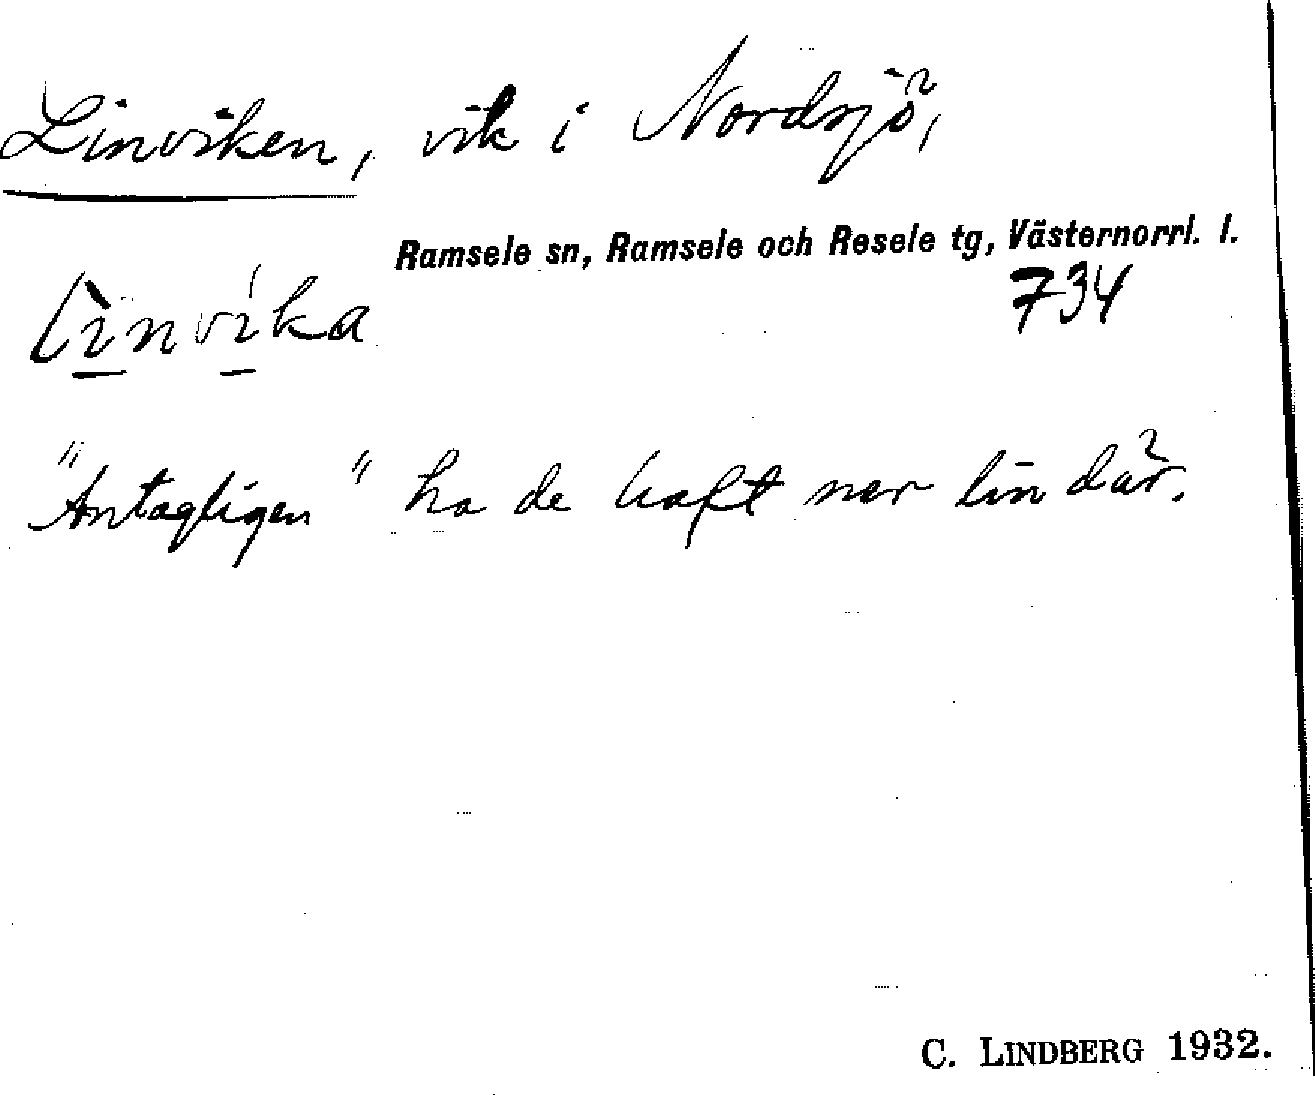 Linviken, vik i Nordsjö,
Ramsele sn, Ramsele och Resele tg, Västernorrl. l.
734
linvika
"Antagligen" ha de haft ner lin där.
C. LINDBERG 1932.